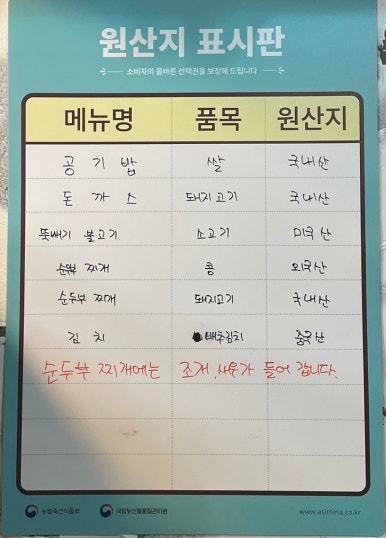 원산지 표시판
소비자의 올바른 선택권을 보장해 드립니다
메뉴명 품목 원산지
공 기 밥 쌀 국내산
돈 까 스 돼지고기 국내산
뚝빼기 불고기 소고기 미국산
순두부 찌개 콩 외국산
순두부 찌개 돼지고기 국내산
김 치 배추김치 중국산
순두부 찌개에는 조개, 새우가 들어 갑니다.
농림축산식품부 국립농산물품질관리원 www.asimina.co.kr